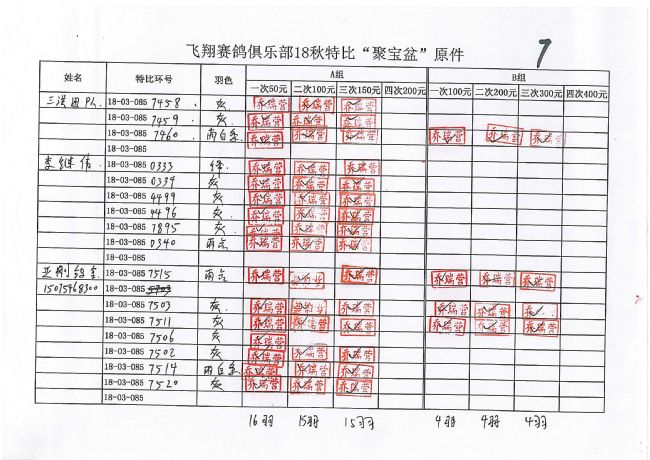 飞翔赛鸽俱乐部18秋特比“聚宝盆”原件 7
姓名 特比环号 羽色 A组 B组
一次50元 二次100元 三次150元 四次200元 一次100元 二次200元 三次300元 四次400元
18-03-085 7458 灰 乔瑞营 乔瑞营 乔瑞营
18-03-085 7459 灰 乔瑞营 乔瑞营 乔瑞营
18-03-085 7460 雨白条 乔瑞营 乔瑞营 乔瑞营 乔瑞营 乔瑞营 乔瑞营
18-03-085
李继伟 18-03-085 0333 绛 乔瑞营 乔瑞营 乔瑞营
18-03-085 0334 灰 乔瑞营 乔瑞营 乔瑞营
18-03-085 4499 灰 乔瑞营 乔瑞营 乔瑞营
18-03-085 4496 灰 乔瑞营 乔瑞营 乔瑞营
18-03-085 7895 灰 乔瑞营 乔瑞营 乔瑞营
18-03-085 0340 雨点 乔瑞营 乔瑞营 乔瑞营
18-03-085
18-03-085 7515 雨点 乔瑞营 乔瑞营 乔瑞营 乔瑞营 乔瑞营
18-03-085
18-03-085 7503 灰 乔瑞营 乔瑞营 乔瑞营 乔瑞营
18-03-085 7511 灰 乔瑞营 乔瑞营 乔瑞营 乔瑞营 乔瑞营 乔瑞营
18-03-085 7506 灰 乔瑞营
18-03-085 7502 灰 乔瑞营 乔瑞营 乔瑞营
18-03-085 7514 雨白条 乔瑞营 乔瑞营 乔瑞营
18-03-085 7520 灰 乔瑞营 乔瑞营 乔瑞营
18-03-085
16羽 15羽 15羽 4羽 4羽 4羽